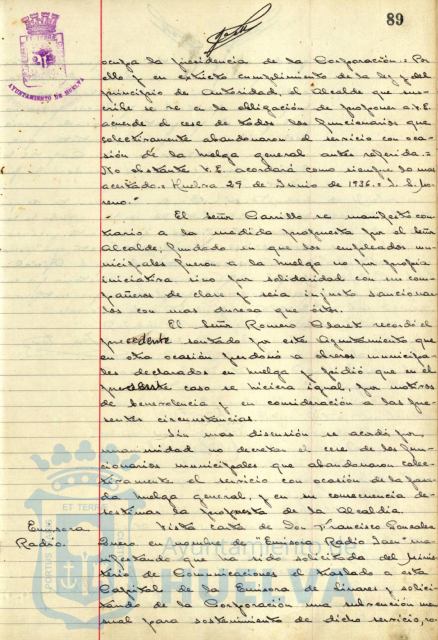 89
AYUNTAMIENTO DE HUELVA
ocupa la presidencia de la Corporación.= Por
ello y en estricto cumplimiento de la ley y del
principio de Autoridad, el Alcalde que sus-
cribe se ve en la obligación de proponer a V.E.
acuerde el cese de todos los funcionarios que
colectivamente abandonaron el servicio con oca-
sión de la huelga general antes referida.=
No obstante V.E. acordará como siempre lo mas
acertado.= Huelva 29 de Junio de 1936.=
El Señor Carrillo se manifestó con-
trario a la medida propuesta por el Señor
Alcalde, fundado en que los empleados mu-
nicipales fueron a la huelga no por propia
iniciativa sino por solidaridad con sus com-
pañeros de clase y seria injusto sancionar-
los con mas dureza que éstos.
El Señor Romero recordó el
precedente sentado por este Ayuntamiento que
en otra ocasión perdonó a obreros municipa-
les declarados en huelga y pidió que en el
presente caso se hiciera igual, por motivos
de benevolencia y en consideración a las pre-
sentes circunstancias.
Sin mas discusión se acordó por
unanimidad no decretar el cese de los fun-
cionarios municipales que abandonaron colec-
tivamente el servicio con ocasión de la pasa-
da huelga general, y en su consecuencia de-
sestimar la propuesta de la Alcaldia.
Emisora
Radio.
Vista carta de Don Francisco Gonzalez
en nombre de "Emisora Radio Jaen" ma-
nifestando que ha sido solicitada del Minis-
terio de Comunicaciones el traslado a esta
Capital de la Emisora de Linares y solici-
tando de la Corporación una subvención men-
sual para sostenimiento de dicho servicio,
Ayuntamiento
HUELVA